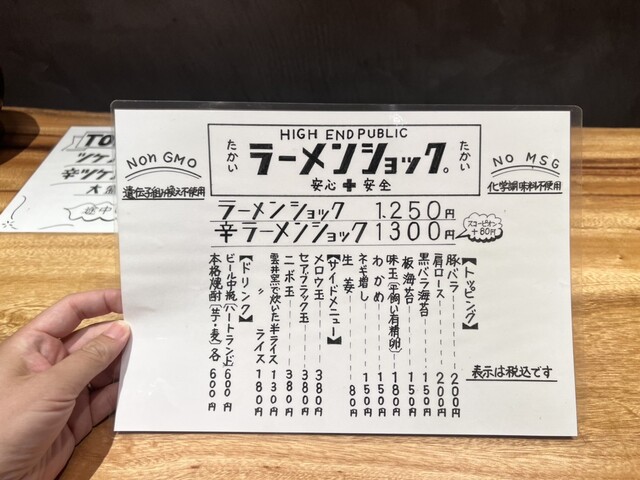 HIGH END PUBLIC
たかい
ラーメンショック。
たかい
安心✚安全
Non GMO
遺伝子組み換え不使用
NO MSG
化学調味料不使用
ラーメンショック 1.250円
辛ラーメンショック 1300円
スコーピオン
+80円
【トッピング】
豚バラ 200円
肩ロース 200円
黒バラ海苔 150円
板海苔 150円
味玉(平飼い有精卵) 180円
わかめ 150円
ネギ増し 150円
生姜 80円
【サイドメニュー】
メロウ玉 380円
セアブラック玉 380円
ニボ玉 380円
雲井窯で炊いた半ライス 130円
〃 ライス 180円
【ドリンク】
ビール中瓶(ハートランド) 600円
本格焼酎(芋・麦)各 600円
表示は税込です
TO
ツケ
辛ツケ
大盛
途中